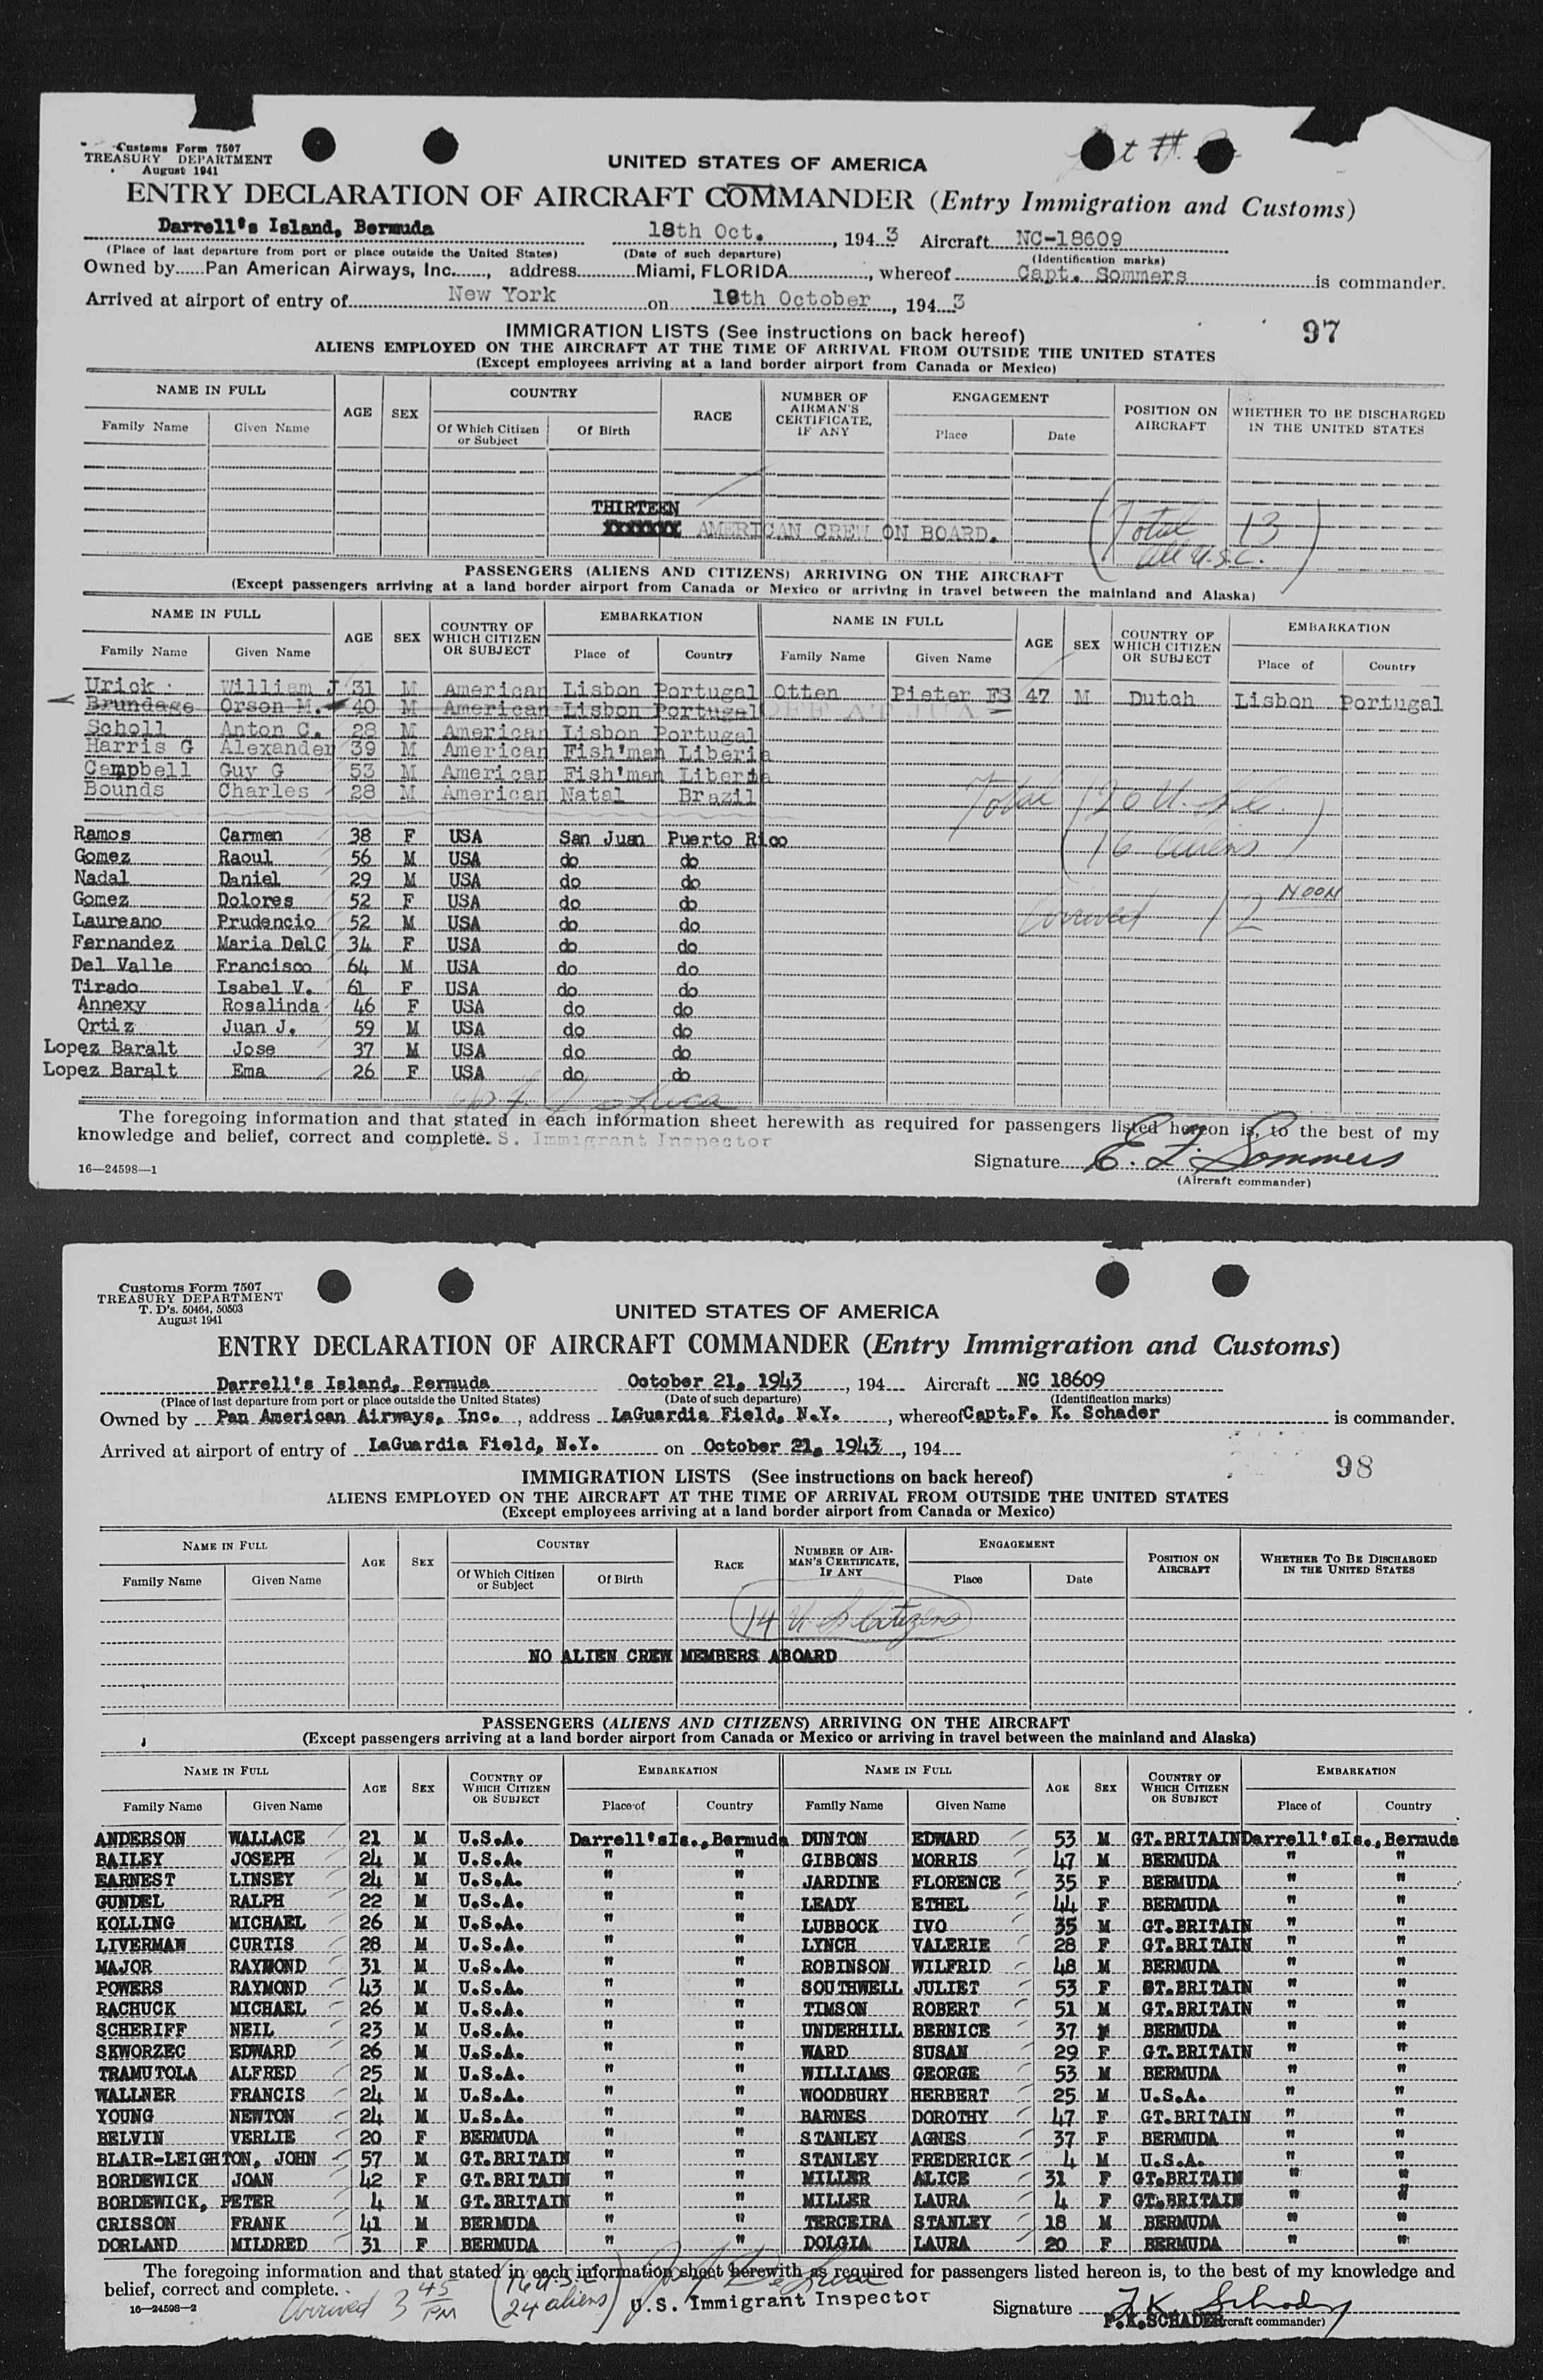 Customs Form 7507
TREASURY DEPARTMENT
August 1941
UNITED STATES OF AMERICA
ENTRY DECLARATION OF AIRCRAFT COMMANDER (Entry Immigration and Customs)
Darrell's Island, Bermuda 18th Oct. , 1943 Aircraft NC-18609
(Place of last departure from port or place outside the United States) (Date of such departure) (Identification marks)
Owned by Pan American Airways, Inc. , address Miami, FLORIDA , whereof Capt. Sommers is commander.
Arrived at airport of entry of New York on 18th October , 1943
97
IMMIGRATION LISTS (See instructions on back hereof)
ALIENS EMPLOYED ON THE AIRCRAFT AT THE TIME OF ARRIVAL FROM OUTSIDE THE UNITED STATES
(Except employees arriving at a land border airport from Canada or Mexico)
NAME IN FULL AGE SEX COUNTRY RACE NUMBER OF AIRMAN'S CERTIFICATE, IF ANY ENGAGEMENT POSITION ON AIRCRAFT WHETHER TO BE DISCHARGED IN THE UNITED STATES
Family Name Given Name Of Which Citizen or Subject Of Birth Place Date
THIRTEEN
XXXXXXX AMERICAN CREW ON BOARD.
(Total 13
All U.S.C.)
PASSENGERS (ALIENS AND CITIZENS) ARRIVING ON THE AIRCRAFT
(Except passengers arriving at a land border airport from Canada or Mexico or arriving in travel between the mainland and Alaska)
NAME IN FULL AGE SEX COUNTRY OF WHICH CITIZEN OR SUBJECT EMBARKATION NAME IN FULL AGE SEX COUNTRY OF WHICH CITIZEN OR SUBJECT EMBARKATION
Family Name Given Name Place of Country Family Name Given Name Place of Country
Urick William J 31 M American Lisbon Portugal Otten Pieter FS 47 M Dutch Lisbon Portugal
Brundage Orson M. 40 M American Lisbon Portugal OFF AT JUA
Scholl Anton C. 28 M American Lisbon Portugal
Harris G Alexander 39 M American Fish'man Liberia
Campbell Guy G 53 M American Fish'man Liberia
Bounds Charles 28 M American Natal Brazil
Total
Ramos Carmen 38 F USA San Juan Puerto Rico
Gomez Raoul 56 M USA do do
Nadal Daniel 29 M USA do do
Gomez Dolores 52 F USA do do
Laureano Prudencio 52 M USA do do
Arrived 12 NOON
Fernandez Maria DelC 34 F USA do do
Del Valle Francisco 64 M USA do do
Tirado Isabel V. 61 F USA do do
Annexy Rosalinda 46 F USA do do
Ortiz Juan J. 59 M USA do do
Lopez Baralt Jose 37 M USA do do
Lopez Baralt Ema 26 F USA do do
The foregoing information and that stated in each information sheet herewith as required for passengers listed hereon is, to the best of my
knowledge and belief, correct and complete. S. Immigrant Inspector
Signature E. F. Sommers
16—24598—1
(Aircraft commander)
Customs Form 7507
TREASURY DEPARTMENT
T. D's. 50464, 50503
August 1941
UNITED STATES OF AMERICA
ENTRY DECLARATION OF AIRCRAFT COMMANDER (Entry Immigration and Customs)
Darrell's Island, Bermuda October 21, 1943 , 194 Aircraft NC 18609
(Place of last departure from port or place outside the United States) (Date of such departure) (Identification marks)
Owned by Pan American Airways, Inc. , address LaGuardia Field, N.Y. , whereof Capt. F. K. Schader is commander.
Arrived at airport of entry of LaGuardia Field, N.Y. on October 21, 1943 , 194
98
IMMIGRATION LISTS (See instructions on back hereof)
ALIENS EMPLOYED ON THE AIRCRAFT AT THE TIME OF ARRIVAL FROM OUTSIDE THE UNITED STATES
(Except employees arriving at a land border airport from Canada or Mexico)
NAME IN FULL AGE SEX COUNTRY RACE NUMBER OF AIRMAN'S CERTIFICATE, IF ANY ENGAGEMENT POSITION ON AIRCRAFT WHETHER TO BE DISCHARGED IN THE UNITED STATES
Family Name Given Name Of Which Citizen or Subject Of Birth Place Date
14 U S Citizens
NO ALIEN CREW MEMBERS ABOARD
PASSENGERS (ALIENS AND CITIZENS) ARRIVING ON THE AIRCRAFT
(Except passengers arriving at a land border airport from Canada or Mexico or arriving in travel between the mainland and Alaska)
NAME IN FULL AGE SEX COUNTRY OF WHICH CITIZEN OR SUBJECT EMBARKATION NAME IN FULL AGE SEX COUNTRY OF WHICH CITIZEN OR SUBJECT EMBARKATION
Family Name Given Name Place of Country Family Name Given Name Place of Country
ANDERSON WALLACE 21 M U.S.A. Darrell'sIs., Bermuda DUNTON EDWARD 53 M GT.BRITAIN Darrell'sIs., Bermuda
BAILEY JOSEPH 24 M U.S.A. " " GIBBONS MORRIS 47 M BERMUDA " "
EARNEST LINSEY 24 M U.S.A. " " JARDINE FLORENCE 35 F BERMUDA " "
GUNDEL RALPH 22 M U.S.A. " " LEADY ETHEL 44 F BERMUDA " "
KOLLING MICHAEL 26 M U.S.A. " " LUBBOCK IVO 35 M GT.BRITAIN " "
LIVERMAN CURTIS 28 M U.S.A. " " LYNCH VALERIE 28 F GT.BRITAIN " "
MAJOR RAYMOND 31 M U.S.A. " " ROBINSON WILFRID 48 M BERMUDA " "
POWERS RAYMOND 43 M U.S.A. " " SOUTHWELL JULIET 53 F GT.BRITAIN " "
RACHUCK MICHAEL 26 M U.S.A. " " TIMSON ROBERT 51 M GT.BRITAIN " "
SCHERIFF NEIL 23 M U.S.A. " " UNDERHILL BERNICE 37 BERMUDA " "
SKWORZEC EDWARD 26 M U.S.A. " " WARD SUSAN 29 F GT.BRITAIN " "
TRAMUTOLA ALFRED 25 M U.S.A. " " WILLIAMS GEORGE 53 M BERMUDA " "
WALLNER FRANCIS 24 M U.S.A. " " WOODBURY HERBERT 25 M U.S.A. " "
YOUNG NEWTON 24 M U.S.A. " " BARNES DOROTHY 47 F GT.BRITAIN " "
BELVIN VERLIE 20 F BERMUDA " " STANLEY AGNES 37 F BERMUDA " "
BLAIR-LEIGHTON, JOHN 57 M GT.BRITAIN " " STANLEY FREDERICK 4 M U.S.A. " "
BORDEWICK JOAN 42 F GT.BRITAIN " " MILLER ALICE 31 F GT.BRITAIN " "
BORDEWICK, PETER 4 M GT.BRITAIN " " MILLER LAURA 4 F GT.BRITAIN " "
CRISSON FRANK 41 M BERMUDA " " TERCEIRA STANLEY 18 M BERMUDA " "
DORLAND MILDRED 31 F BERMUDA " " DOLGIA LAURA 20 F BERMUDA " "
The foregoing information and that stated in each information sheet herewith as required for passengers listed hereon is, to the best of my knowledge and
belief, correct and complete.
16—24598—2
Arrived 3 45 PM (16 U.S.C. 24 aliens) U.S. Immigrant Inspector
Signature F.K. Schader
F.K.SCHADER (Aircraft commander)